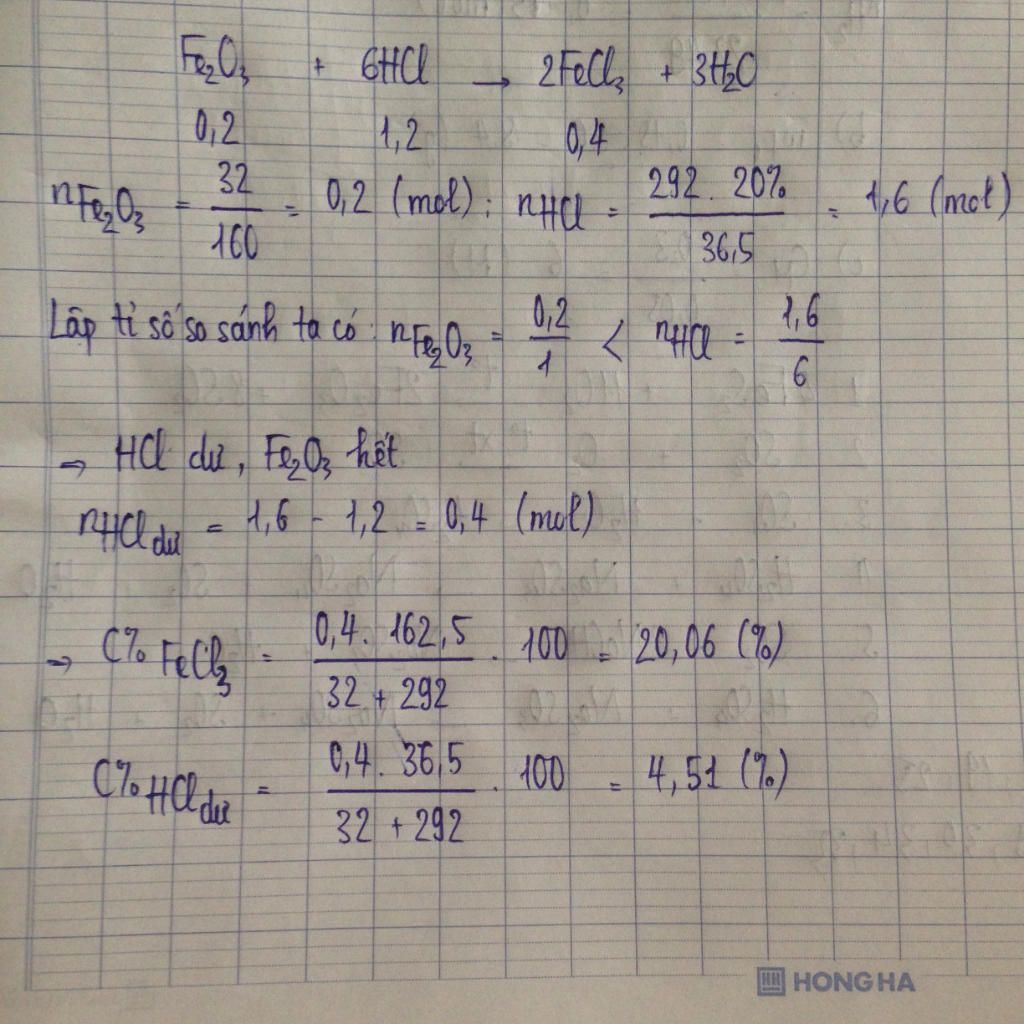 Fe₂O₃ + 6HCl → 2FeCl₃ + 3H₂O
0,2 1,2 0,4
nFe₂O₃ = 32/160 = 0,2 (mol) ; nHCl = 292 . 20%/36,5 = 1,6 (mol)
Lập tỉ số so sánh ta có : nFe₂O₃ = 0,2/1 < nHCl = 1,6/6
⇒ HCl dư, Fe₂O₃ hết
nHCl dư = 1,6 - 1,2 = 0,4 (mol)
⇒ C% FeCl₃ = 0,4 . 162,5/32 + 292 . 100 = 20,06 (%)
C% HCl dư = 0,4 . 36,5/32 + 292 . 100 = 4,51 (%)
HONG HA